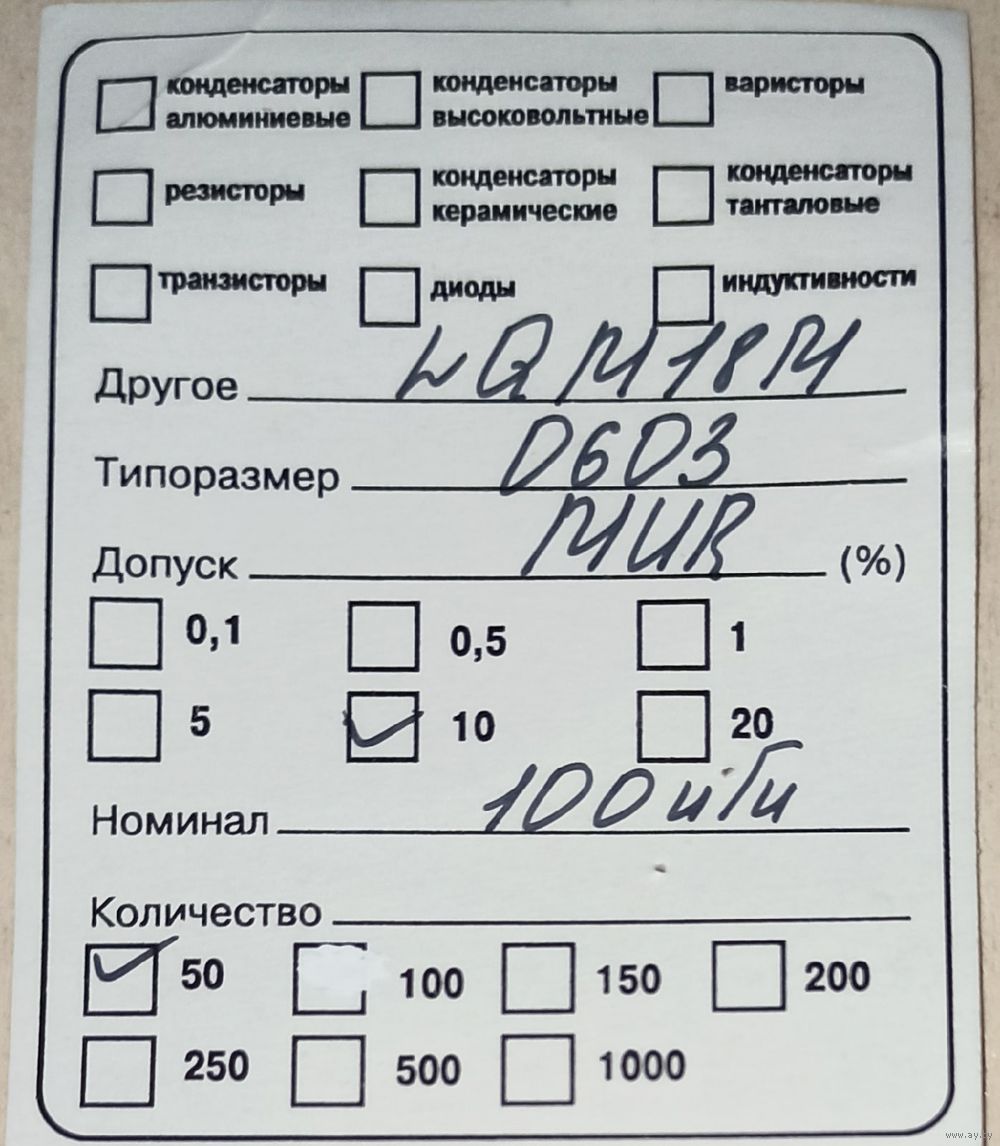 конденсаторы алюминиевые
конденсаторы высоковольтные
варисторы
резисторы
конденсаторы керамические
конденсаторы танталовые
транзисторы
диоды
индуктивности
Другое LQM18M
Типоразмер 0603
Допуск MUR (%)
0,1 0,5 1
5 10 20
Номинал 100нГн
Количество
50 100 150 200
250 500 1000
www.ay.by